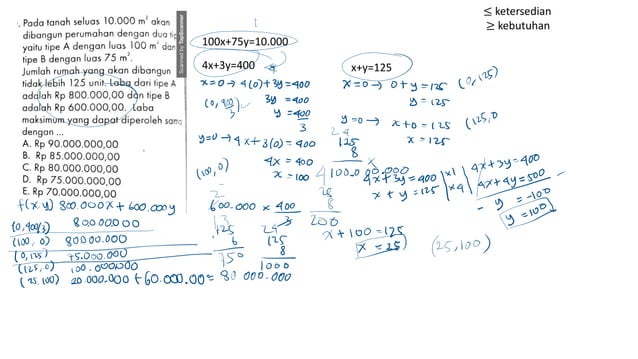 Pada tanah seluas 10.000 m² akan
dibangun perumahan dengan dua
yaitu tipe A dengan luas 100 m² dan
tipe B dengan luas 75 m².
Jumlah rumah yang akan dibangun
tidak lebih 125 unit. Laba dari tipe A
adalah Rp 800.000,00 dan tipe B
adalah Rp 600.000,00. Laba
maksimum yang dapat diperoleh
dengan ...
A. Rp 90.000.000,00
B. Rp 85.000.000,00
C. Rp 80.000.000,00
D. Rp 75.000.000,00
E. Rp 70.000.000,00
f(x,y) 800.000x + 600.000y
(0,400/3) 80.000.000
(100, 0) 80.000.000
(0,125) 75.000.000
(125,0) 100.000.000
(25,100) 20.000.000 + 60.000.00 = 80 000.000
100x+75y=10.000
4x+3y=400
x=0 → 4(0)+3y=400
3y =400
y =400
3
(0,400/3)
y=0 → 4x+3(0) = 400
4x = 400
x = 100
(100,0)
600.000 × 400
3
125
6
750
125
8
1000
≤ ketersedian
≥ kebutuhan
x+y=125
x=0 → 0+y=125
y=125
(0,125)
y=0 → x+0 =125
x = 125
(125,0
125
8
x
100.000.000
200
4x+3y =400 | x1 | 4x+3y=400
x + y = 125 | x4 | 4x+4y=500
- y = -100
y = 100
x+100 =125
x = 25
(25,100)